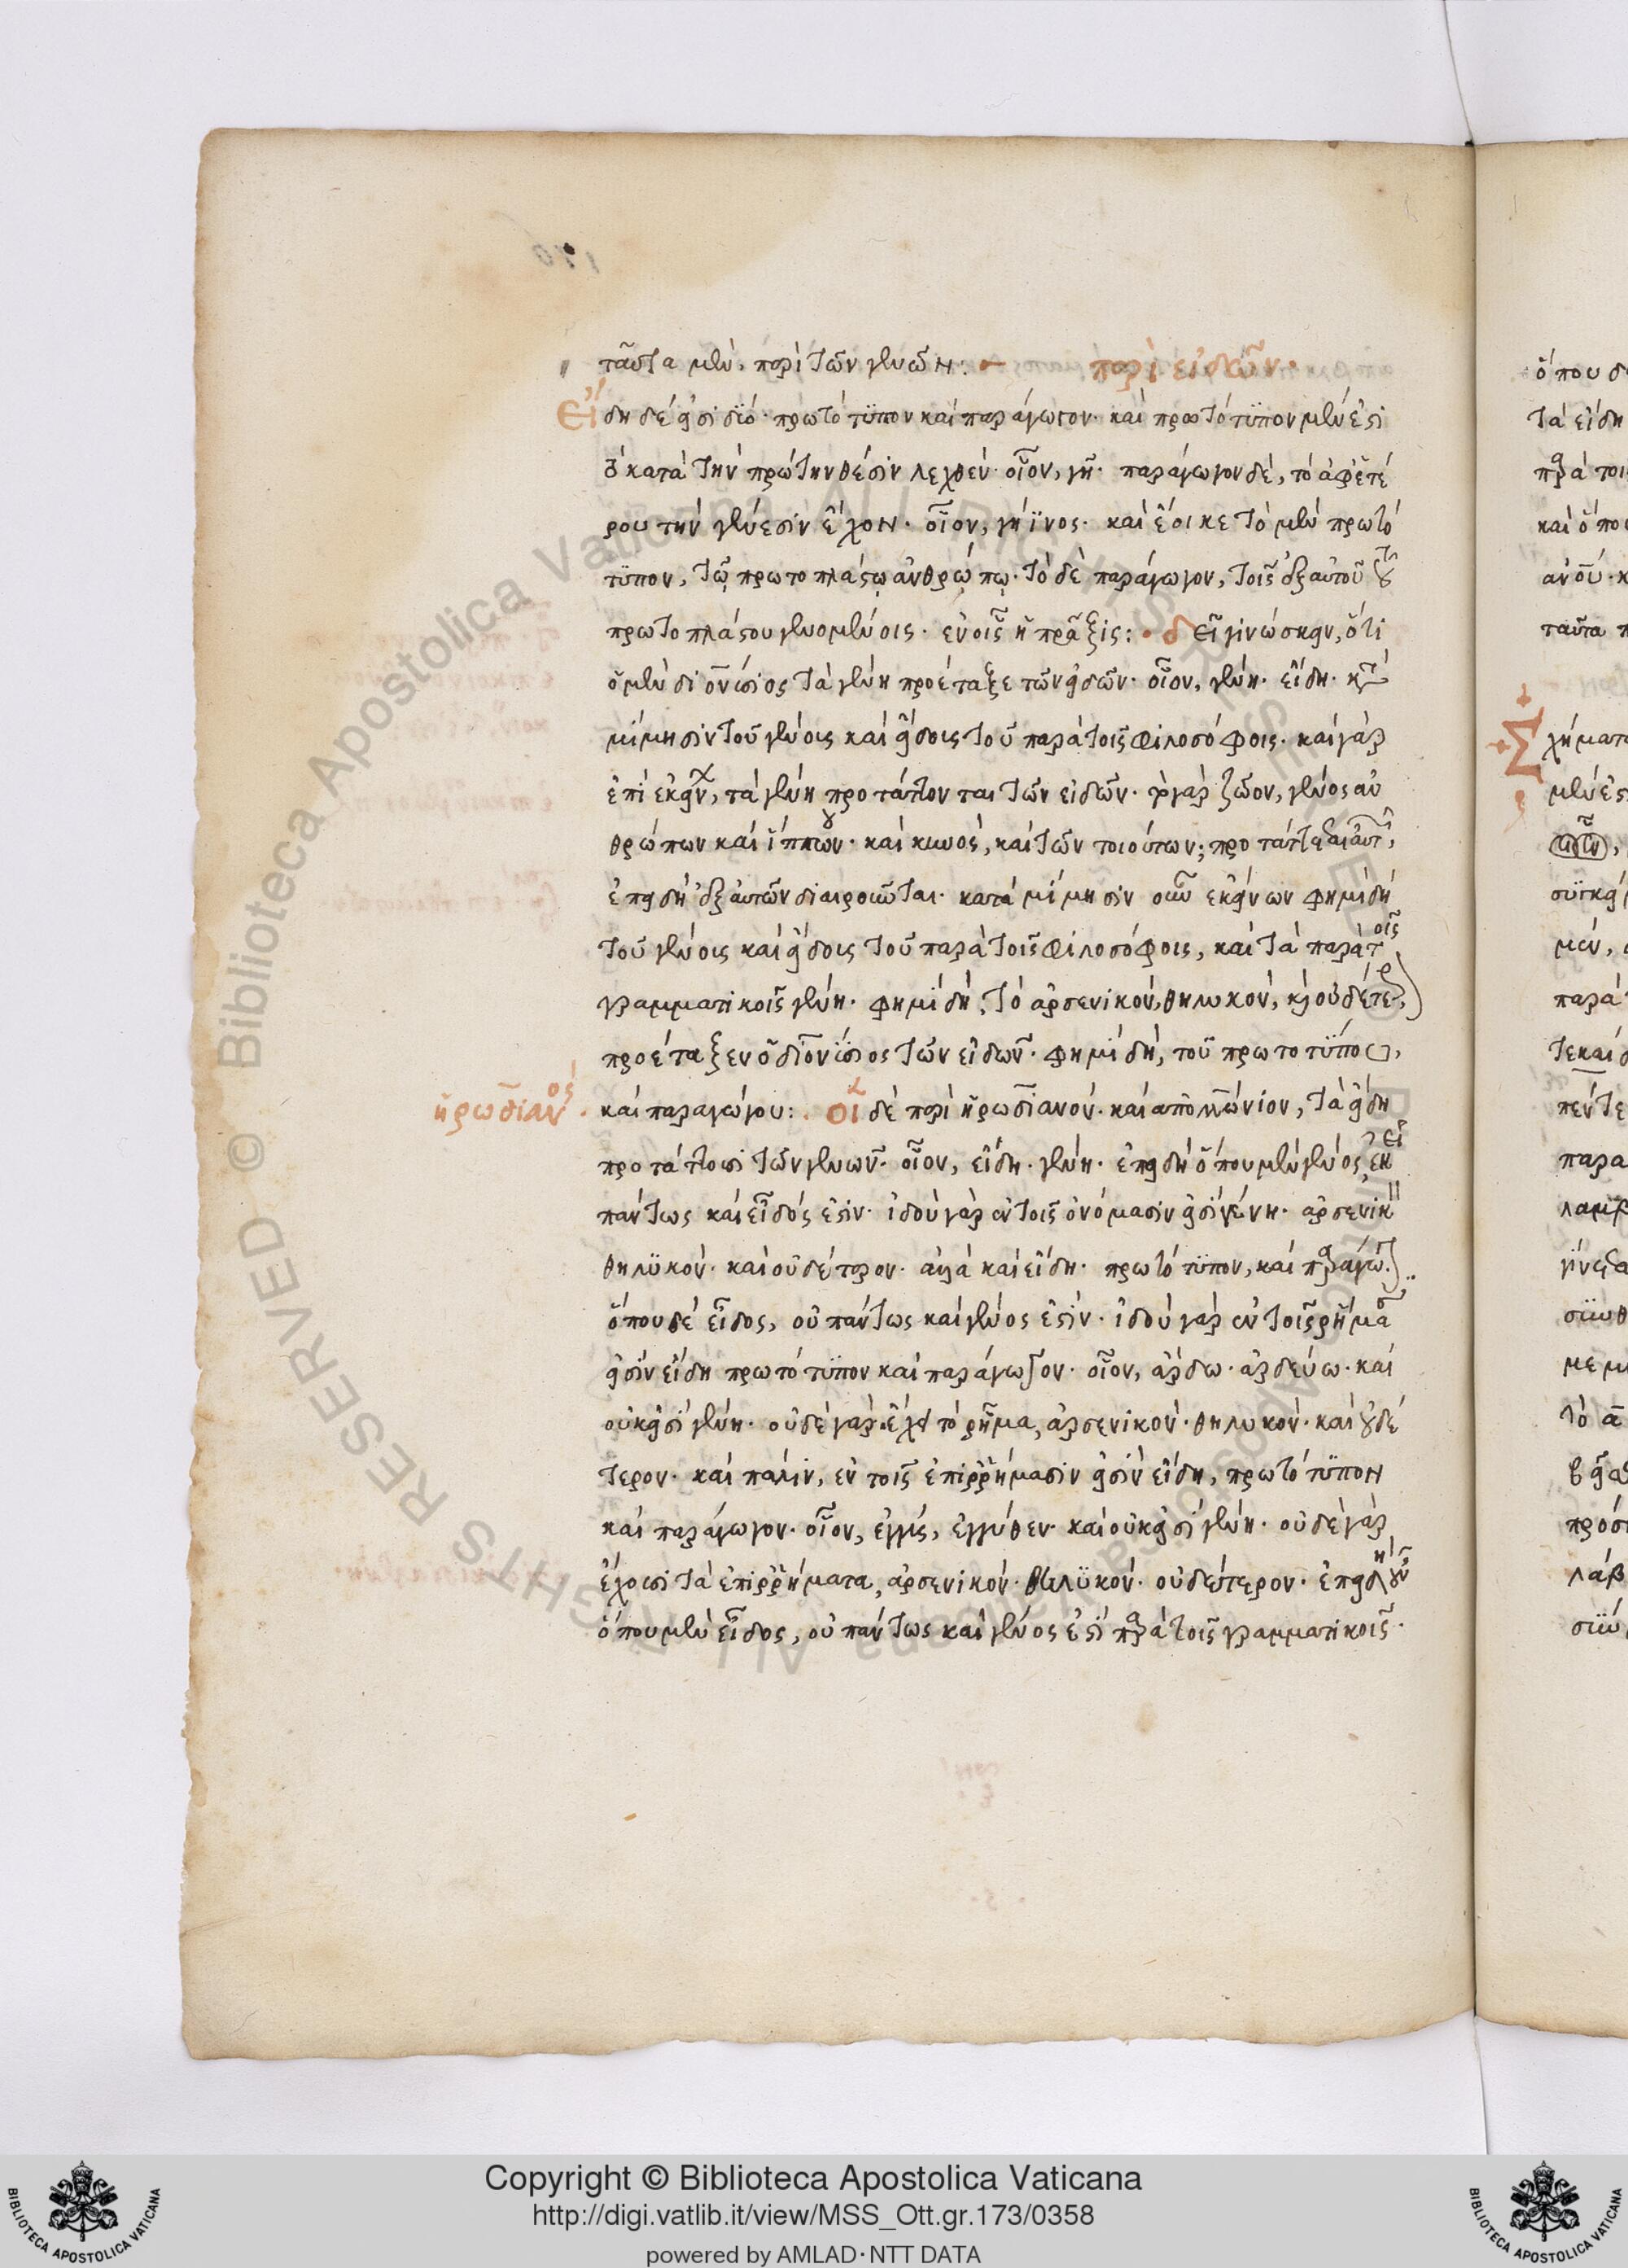 ταῦτα μὲν περὶ τῶν γενῶν: περὶ εἰδῶν·
Εἴδη δέ εἰσι δύο· πρωτότυπον καὶ παράγωγον· καὶ πρωτότυπον μέν ἐστι
ὃ κατὰ τὴν πρώτην θέσιν λεχθέν· οἷον, γῆ· παράγωγον δὲ, τὸ ἀφ' ἑτέ
ρου τὴν γένεσιν ἔχον· οἷον, γήϊνος· καὶ ἔοικε τὸ μὲν πρωτό
τυπον, τῷ πρωτοπλάστῳ ἀνθρώπῳ· τὸ δὲ παράγωγον, τοῖς ἐξ αὐτοῦ τοῦ
πρωτοπλάστου γενομένοις· ἐν οἷς ἡ πρᾶξις: δεῖ γινώσκειν, ὅτι
ὁ μὲν διονύσιος τὰ γένη προέταξε τῶν εἰδῶν· οἷον, γένη· εἴδη· κατὰ
μίμησιν τοῦ γένοις καὶ εἴδοις τοῦ παρὰ τοῖς φιλοσόφοις· καὶ γὰρ
ἐπὶ ἐκείνων, τὰ γένη προτάττονται τῶν εἰδῶν· τὸ γὰρ ζῶον, γένος ἀν
θρώπων καὶ ἵππων· καὶ κυνὸς, καὶ τῶν τοιούτων; προτάττεται αὐτῶν,
ἐπειδὴ ἐξ αὐτῶν διαιροῦνται· κατὰ μίμησιν οὖν ἐκείνων φημὶ δὴ
τοῦ γένοις καὶ εἴδοις τοῦ παρὰ τοῖς φιλοσόφοις, καὶ τὰ παρὰ τοῖς
γραμματικοῖς γένη· φημὶ δὴ, τὸ ἀρσενικόν, θηλυκόν, καὶ οὐδέτερον,
προέταξεν ὁ διονύσιος τῶν εἰδῶν· φημὶ δὴ, τοῦ πρωτοτύπου,
ἡρωδιανός· καὶ παραγώγου: οἱ δὲ περὶ ἡρωδιανόν· καὶ ἀπολλώνιον, τὰ εἴδη
προτάττουσι τῶν γενῶν· οἷον, εἴδη· γένη· ἐπειδὴ ὅπου μὲν γένος ἐστὶ
πάντως καὶ εἶδός ἐστιν· ἰδοὺ γὰρ ἐν τοῖς ὀνόμασιν εἰσὶ γένη· ἀρσενικ
θηλυκόν· καὶ οὐδέτερον· ἀλλὰ καὶ εἴδη· πρωτότυπον, καὶ παράγωγον
ὅπου δὲ εἶδος, οὐ πάντως καὶ γένος ἐστίν· ἰδοὺ γὰρ ἐν τοῖς ῥήμασιν
εἰσὶν εἴδη πρωτότυπον καὶ παράγωγον· οἷον, ἄρδω· ἀρδεύω· καὶ
οὐκ εἰσὶ γένη· οὐδὲ γὰρ ἔχει τὸ ῥῆμα, ἀρσενικόν· θηλυκόν· καὶ οὐδέ
τερον· καὶ πάλιν, ἐν τοῖς ἐπιρρήμασιν εἰσὶν εἴδη, πρωτότυπον
καὶ παράγωγον· οἷον, ἐγγύς, ἐγγύθεν· καὶ οὐκ εἰσὶ γένη· οὐδὲ γὰρ
ἔχουσι τὰ ἐπιρρήματα, ἀρσενικόν· θηλυκόν· οὐδέτερον· ἐπειδὴ οὖν
ὅπου μὲν εἶδος, οὐ πάντως καὶ γένος ἐστὶ παρὰ τοῖς γραμματικοῖς·
Copyright © Biblioteca Apostolica Vaticana
http://digi.vatlib.it/view/MSS_Ott.gr.173/0358
powered by AMLAD·NTT DATA